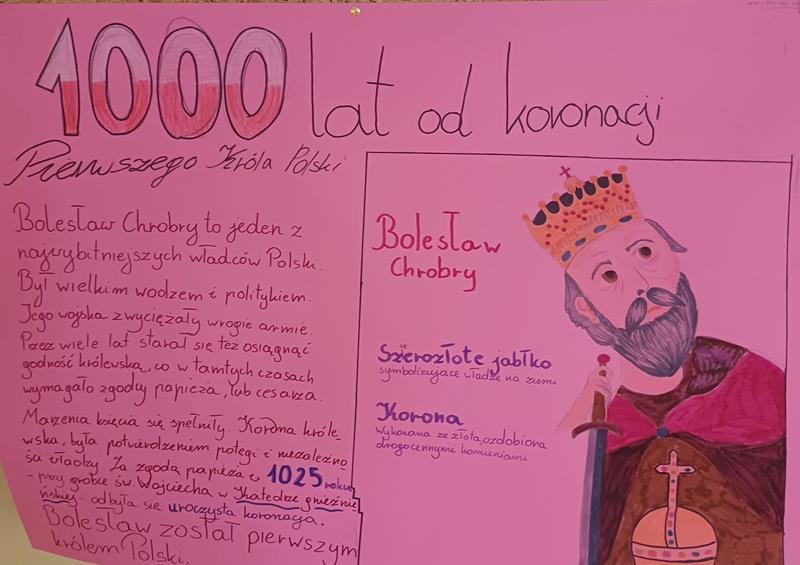 1000 lat od koronacji
Pierwszego Króla Polski
Bolesław Chrobry to jeden z
najwybitniejszych władców Polski.
Był wielkim wodzem i politykiem.
Jego wojska zwyciężały wrogie armie.
Przez wiele lat starał się też osiągnąć
godność królewską, co w tamtych czasach
wymagało zgody papieża, lub cesarza.
Marzenia księcia się spełniły. Korona króle-
wska, była potwierdzeniem potęgi i niezależno
ści władzy. Za zgodą papieża w 1025 roku
- przy grobie św. Wojciecha w Katedrze gnieźnie
ńskiej - odbyła się uroczysta koronacja.
Bolesław został pierwszym
królem Polski.
Bolesław
Chrobry
Szczerozłote jabłko
symbolizujące władze na ziemi.
Korona
Wykonana ze złota, ozdobiona
drogocennymi kamieniami